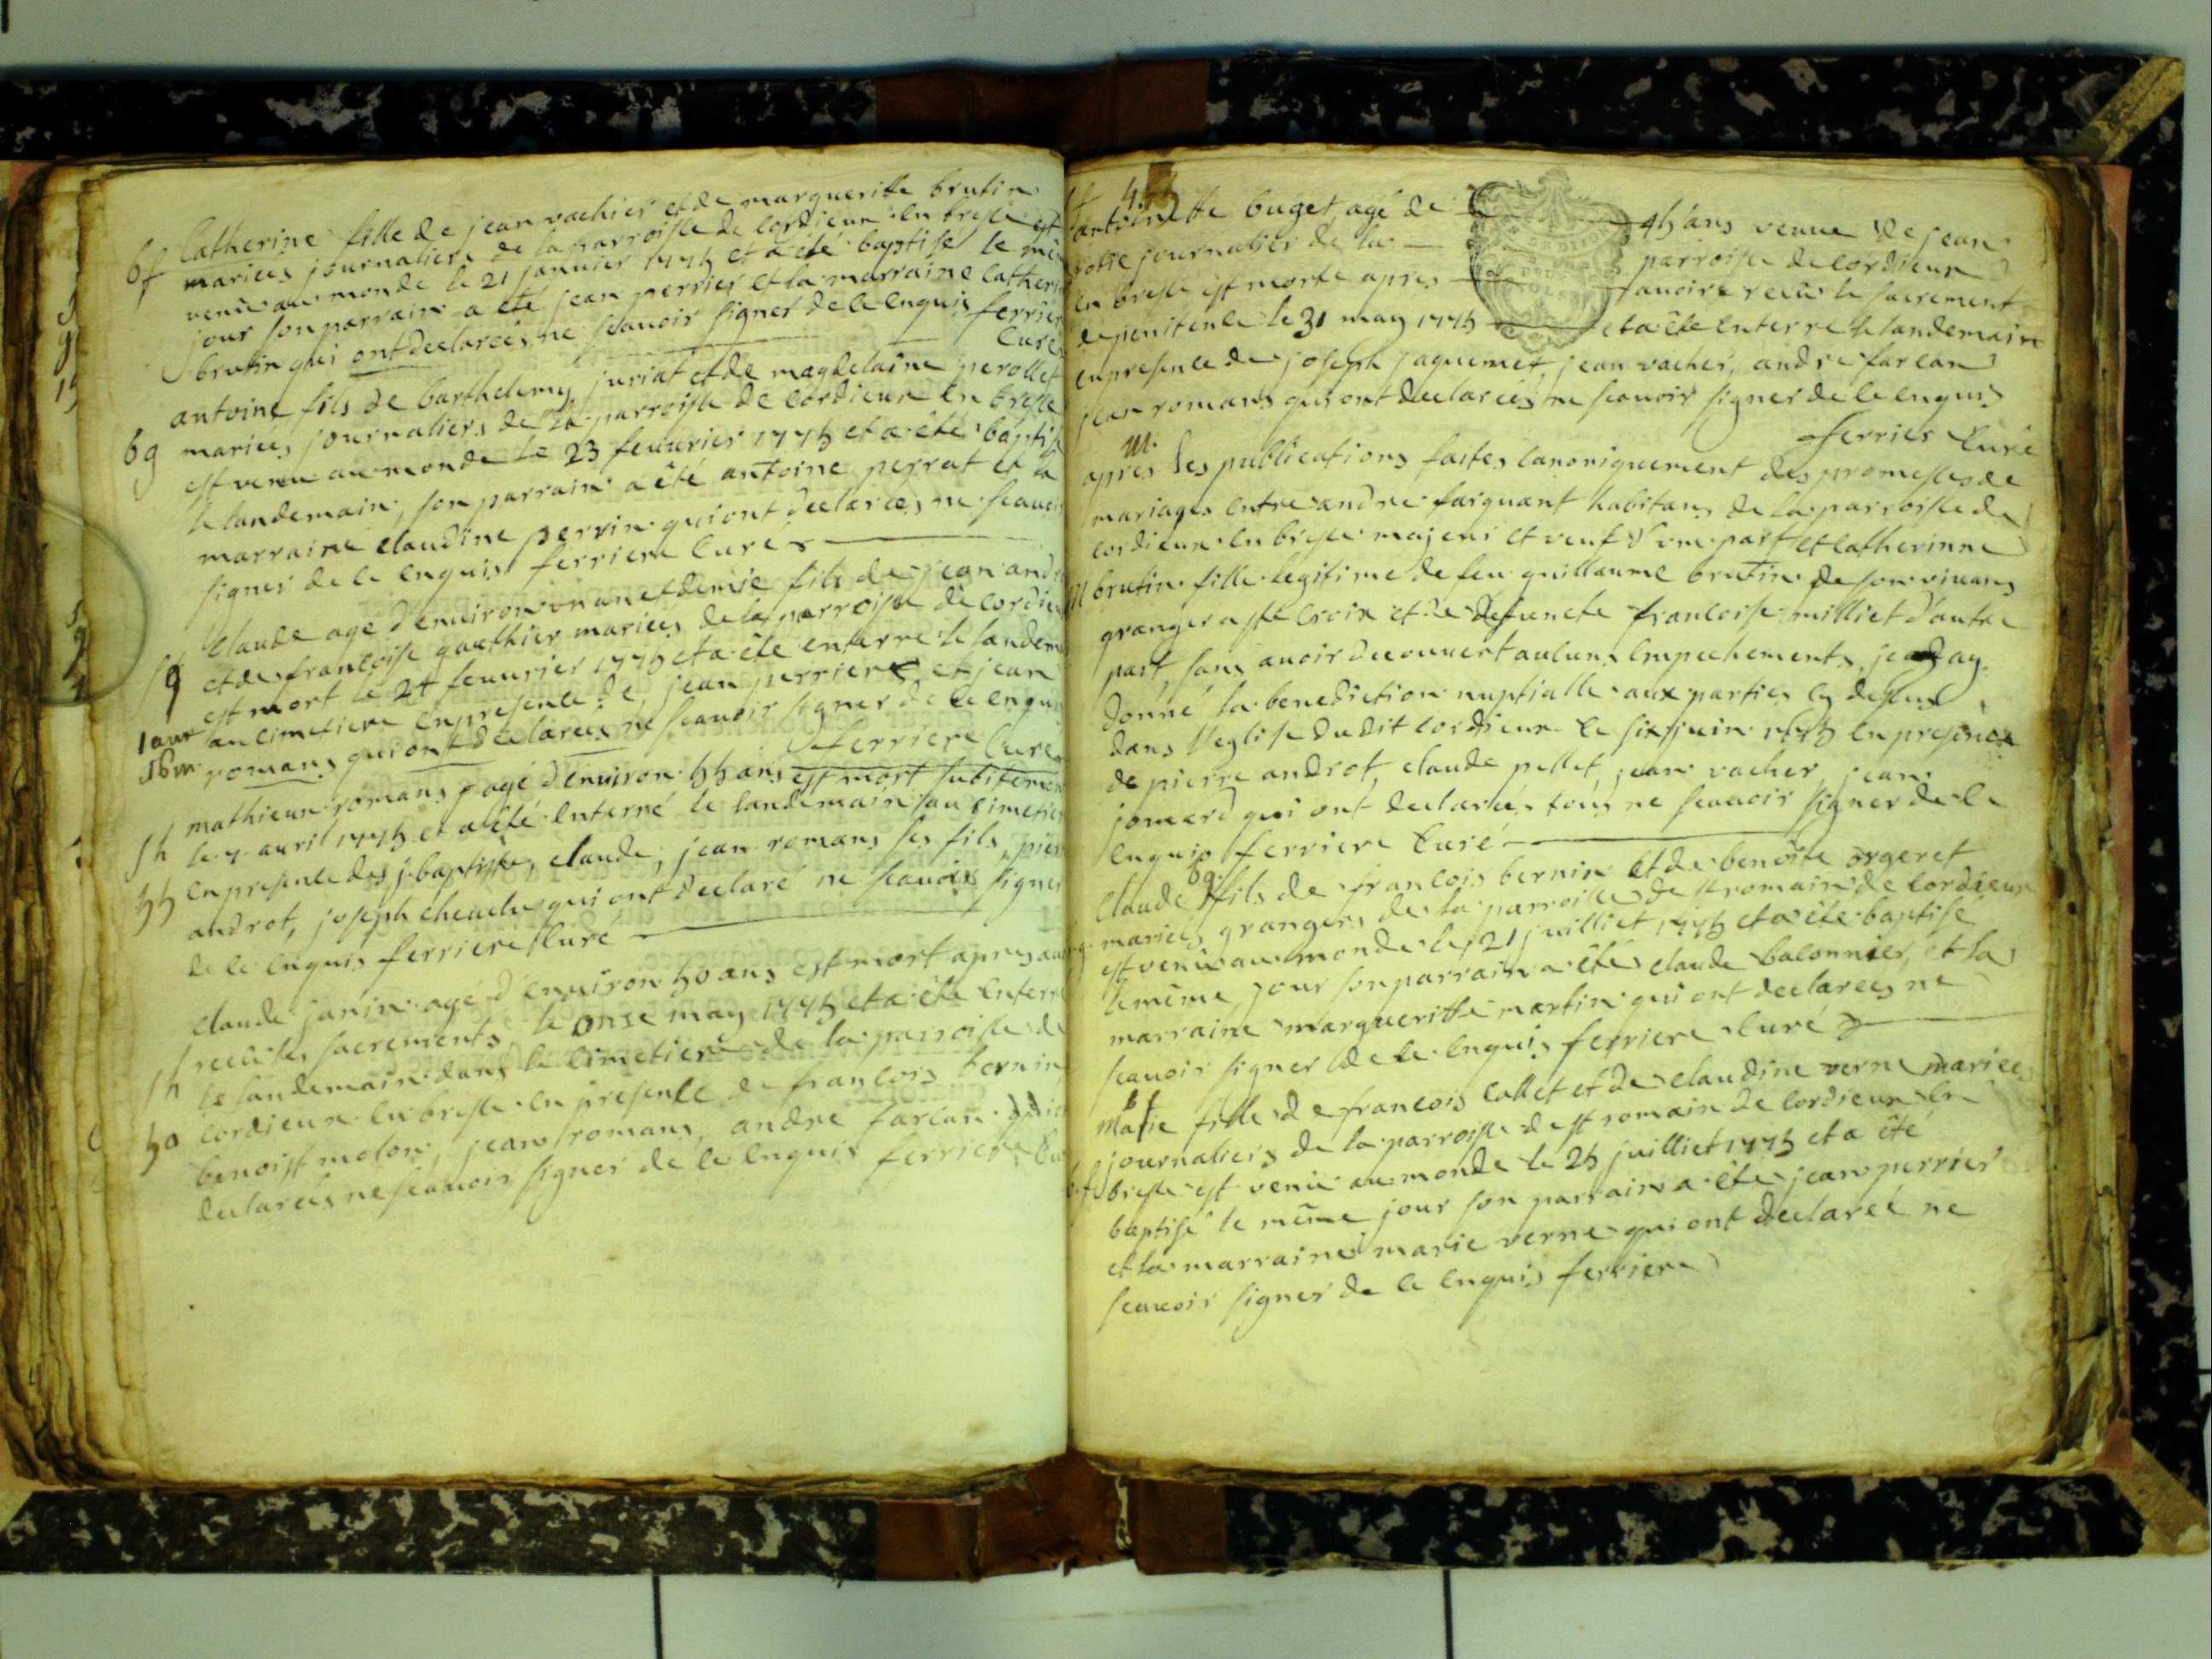 bf Catherine fille de jean vachier et de margueritte brutin
mariees journaliers de la parroisse de Cordieux en bresse est
venüe au monde le 21 janvier 1775 et a été baptisé le mê
jour son parrain a eté jean perrier et la marraine Cather
brutin qui ont declareés ne scavoir signer de ce enquis ferrier
Curé
antoine fils de barthelemy juriat et de magdelaine perollet
bg mariees journaliers de la parroisse de cordieux en bresse
est venu au monde le 23 fevurier 1775 et a été bapti
le landemain, son parrain a été antoine perrat et la
marraine claudine perrin qui ont declarees ne scavoi
signer de ce enquis ferriere Curé
Claude age d'environ un an et demie fils de jean andr
Sg et de francoise gauthier mariees de la parroisse de cordie
est mort le 24 fevurier 1775 et a été enterre le landem
1 an au cimetiere en presence de jean perriere et jean
romans qui ont declarees ne scavoir signer de ce enquis
ferriere Curé
mathieu romans agé d'environ 55 ans est mort subitemen
Sh le 7 avril 1775 et a été Enterré le landemain au cimetier
55 en presence des j. baptiste, claude, jean romans ses fils, pier
androt, joseph qui ont declaré ne scavoir signer
de ce enquis ferriere Curé
Claude janin agé d'environ 50 ans est mort apres avoi
receu les sacrements le onse may 1775 et a été Enterr
Sh le landemain dans le cimetiere de la parroisse de
50 Cordieux en bresse en presence de francois bernin
benoist molon, jean romans, andre farcan
declareés ne scavoir signer de ce enquis ferriere Cu
Sf 45
antoinette buget, agé de 45 ans veuve de jean
journalier de la parroisse de cordieux
en bresse est morte apres avoire receu le sacrement
de penitence le 31 may 1775 et a été enterre le landemain
en presence de joseph jaquemet, jean vacher, andre farcan
jean romans qui ont declareés ne scavoir signer de ce enquis
ferrier Curé
m.
apres les publications faites canoniquement des promesses de
mariages entre andre farquant habitans de la parroisse de
cordieux en bresse majeur et veuf d'une part et Catherinne
brutin fille legitime de feu guillaume brutin de son vivans
granger a ste Croix et de defuncte francoise milliet d'autre
part, sans avoir decouvert auluns empechements, je ay
donné la benediction nuptialle aux parties cy dessus
dans l'eglise dudit cordieux le six juin 1775 en presence
de pierre androt, claude pellet, jean vacher, jean
jomard qui ont declarées tous ne scavoir signer de ce
enquis ferriere Curé
bg.
Claude fils de francois bernin et de benoite orgeret
mariés grangers de la parroisse de st romain de Cordieux
est venü au monde le 21 juilliet 1775 et a été baptisé
le même jour son parrain a été claude balonnier, et la
marraine margueritte martin qui ont declarees ne
scavoir signer de ce enquis ferriere Curé
bf
Marie fille de francois Callet et de claudine verne mariees
journaliers de la parroisse de st romain de Cordieux en
bf bresse est venüe au monde le 25 juilliet 1775 et a été
baptisé le même jour son parrain a été jean perrier
et la marraine marie verne qui ont declareé ne
scavoir signer de ce enquis ferriere